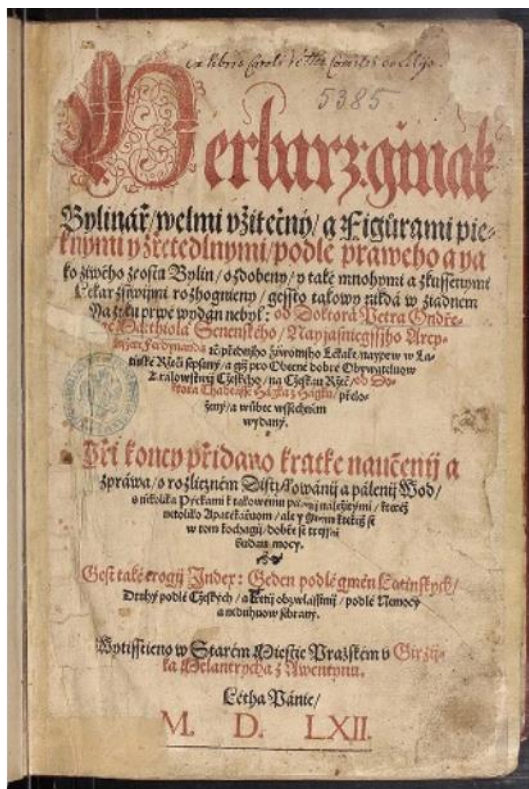 5385.
Herbarz: ginak
Bylinář / welmi vžitečný / a Figůrami pie-
knymi y zřetedlnymi / podle praweho a ya
ko žiwého zrostu Bylin / ozdobeny / y také mnohymi a zkussenymi
Lékařstwijmi rozhognieny / gessto takowy nikda w žiadném
Yazyku prwe wydán nebyl: od Doktora Petra Ondře-
ge Matthiola Senenského / Nayjasniegssiho Arcy-
knižete Ferdynanda ꝛč předniho žiwotniho Lékaře / nayprw w La-
tinské Ržeči sepsaný / a giž pro Obecné dobré Obywateluow
Kralowstwij Cžeského / na Cžeskau Ržeč / od Do-
ktora Thadeasse Hágka z Hágku / přelo-
žený / a wůbec wssechněm
wydaný.
Při koncy přidano kratke naučenij a
zpráwa / o rozličzném Distyllowánij a pálenij Wod /
s několika Pěckami k takowému pálenij náležitými / kteréž
netoliko Apatekařuom / ale y giným kteřiž se
w tom kochagij / dobře se trefiti
budau mocy.
Gest také trogij Index: Geden podlé gmén Latinských /
Druhý podlé Cžeských / a Třetij obzwlásstnij / podlé Nemocý
a neduhuow sebraný.
Wytisstieno w Starém Miestie Pražském v Giržij-
ka Melantrycha z Awentynu.
Létha Pánie /
M. D. LXII.